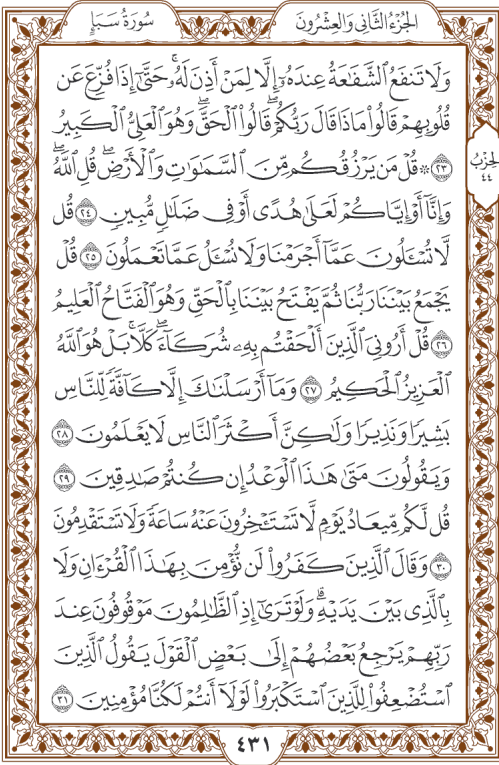 الجُزْءُ الثَّانِي وَالعِشْرُونَ
سُورَةُ سَبَإٍ
وَلَا تَنفَعُ ٱلشَّفَٰعَةُ عِندَهُۥٓ إِلَّا لِمَنْ أَذِنَ لَهُۥۚ حَتَّىٰٓ إِذَا فُزِّعَ عَن
قُلُوبِهِمْ قَالُوا۟ مَاذَا قَالَ رَبُّكُمْۖ قَالُوا۟ ٱلْحَقَّۖ وَهُوَ ٱلْعَلِىُّ ٱلْكَبِيرُ
٢٣ ۞ قُلْ مَن يَرْزُقُكُم مِّنَ ٱلسَّمَٰوَٰتِ وَٱلْأَرْضِۖ قُلِ ٱللَّهُۖ
وَإِنَّآ أَوْ إِيَّاكُمْ لَعَلَىٰ هُدًى أَوْ فِى ضَلَٰلٍ مُّبِينٍ ٢٤ قُل
لَّا تُسْـَٔلُونَ عَمَّآ أَجْرَمْنَا وَلَا نُسْـَٔلُ عَمَّا تَعْمَلُونَ ٢٥ قُلْ
يَجْمَعُ بَيْنَنَا رَبُّنَا ثُمَّ يَفْتَحُ بَيْنَنَا بِٱلْحَقِّ وَهُوَ ٱلْفَتَّاحُ ٱلْعَلِيمُ
٢٦ قُلْ أَرُونِىَ ٱلَّذِينَ أَلْحَقْتُم بِهِۦ شُرَكَآءَۖ كَلَّاۚ بَلْ هُوَ ٱللَّهُ
ٱلْعَزِيزُ ٱلْحَكِيمُ ٢٧ وَمَآ أَرْسَلْنَٰكَ إِلَّا كَآفَّةً لِّلنَّاسِ
بَشِيرًا وَنَذِيرًا وَلَٰكِنَّ أَكْثَرَ ٱلنَّاسِ لَا يَعْلَمُونَ ٢٨
وَيَقُولُونَ مَتَىٰ هَٰذَا ٱلْوَعْدُ إِن كُنتُمْ صَٰدِقِينَ ٢٩
قُل لَّكُم مِّيعَادُ يَوْمٍ لَّا تَسْتَـْٔخِرُونَ عَنْهُ سَاعَةً وَلَا تَسْتَقْدِمُونَ
٣٠ وَقَالَ ٱلَّذِينَ كَفَرُوا۟ لَن نُّؤْمِنَ بِهَٰذَا ٱلْقُرْءَانِ وَلَا
بِٱلَّذِى بَيْنَ يَدَيْهِۗ وَلَوْ تَرَىٰٓ إِذِ ٱلظَّٰلِمُونَ مَوْقُوفُونَ عِندَ
رَبِّهِمْ يَرْجِعُ بَعْضُهُمْ إِلَىٰ بَعْضٍ ٱلْقَوْلَ يَقُولُ ٱلَّذِينَ
ٱسْتُضْعِفُوا۟ لِلَّذِينَ ٱسْتَكْبَرُوا۟ لَوْلَآ أَنتُمْ لَكُنَّا مُؤْمِنِينَ ٣١
الحِزْبُ
٤٤
٤٣١